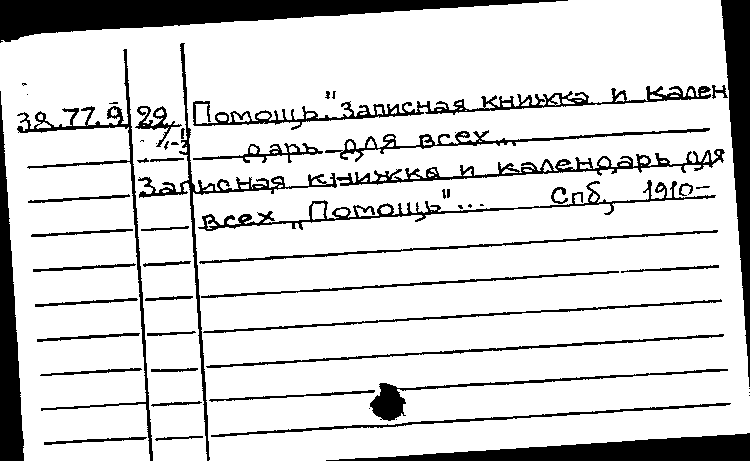 38.77.9 22/1-3 Помощь". Записная книжка и кален
дарь для всех...
Записная книжка и календарь для
всех „Помощь"... Спб, 1910-